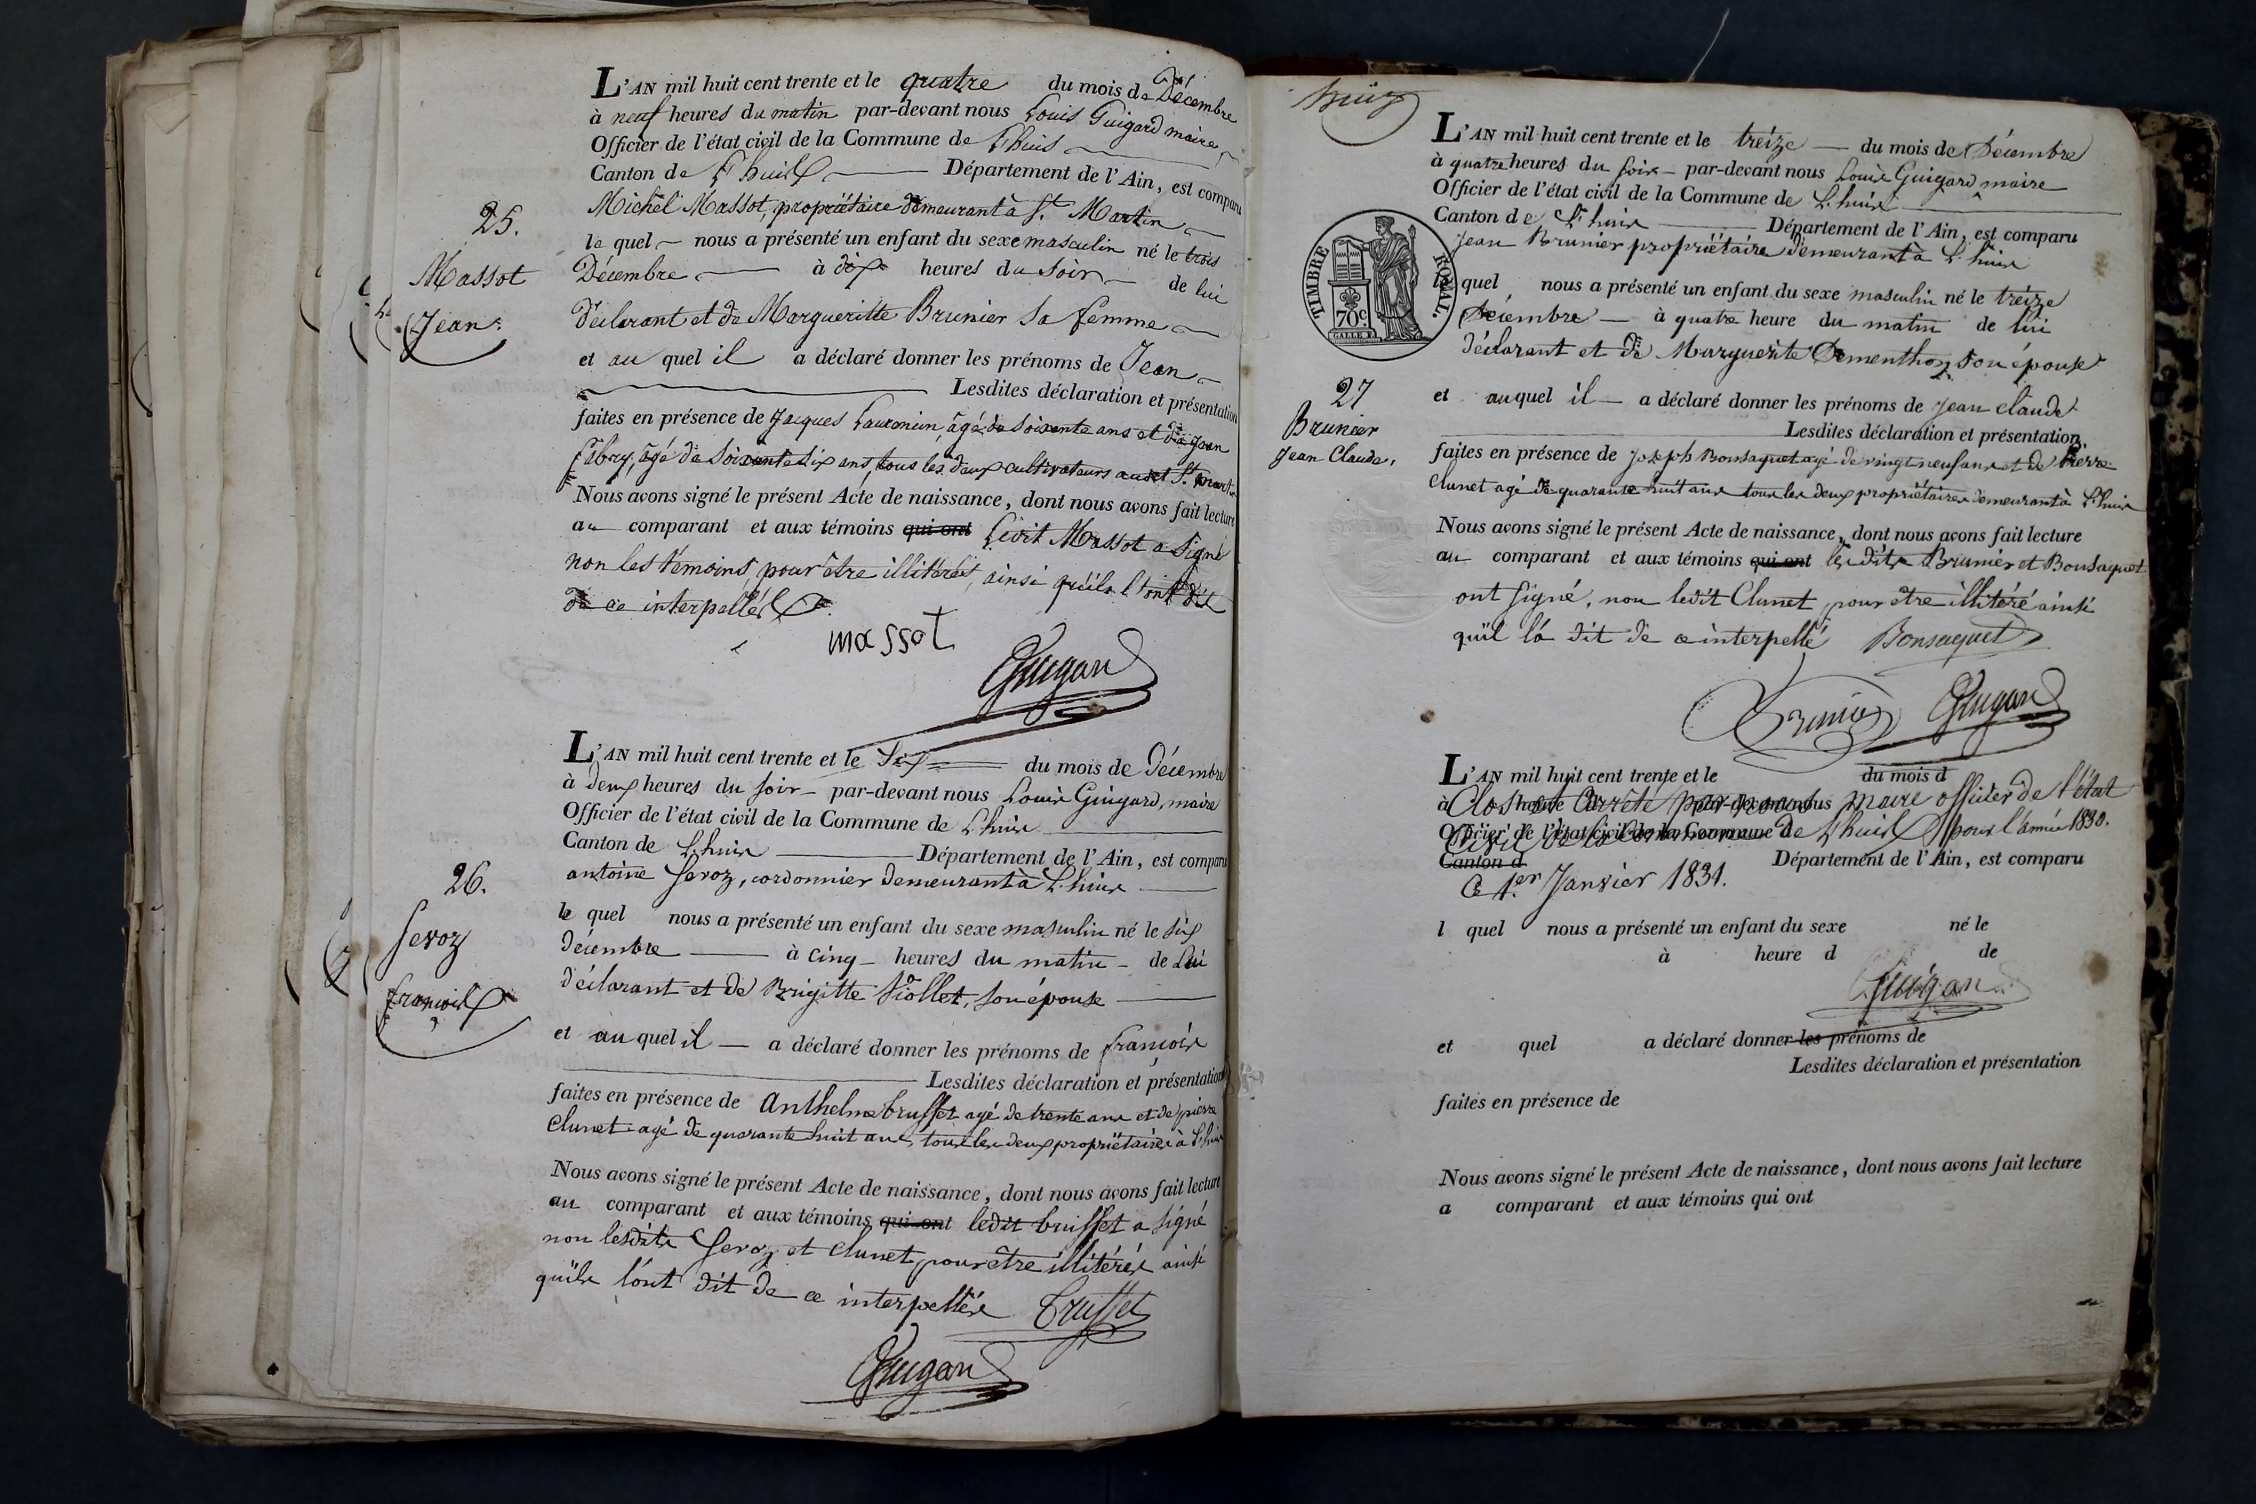 L'AN mil huit cent trente et le quatre du mois de Décembre
à neuf heures du matin par-devant nous Louis Guigard maire
Officier de l'état civil de la Commune de Lhuis
Canton de Lhuis Département de l'Ain, est comparu
Michel Massot, propriétaire demeurant à St. Martin
le quel nous a présenté un enfant du sexe masculin né le trois
Décembre à dix heures du Soir de lui
déclarant et de Margueritte Brunier sa femme
et au quel il a déclaré donner les prénoms de Jean
Lesdites déclaration et présentation
faites en présence de Jacques âgé de soixante ans et de Jean
Fabry, âgé de soixante six ans, tous les deux cultivateurs audit St.
Nous avons signé le présent Acte de naissance, dont nous avons fait lecture
au comparant et aux témoins qui ont Ledit Massot a signé
non les témoins, pour être illitérés, ainsi qu'ils l'ont dit
de ce interpellés
25.
Massot
Jean.
massot
Guigard
L'AN mil huit cent trente et le Six du mois de Décembre
à deux heures du soir par-devant nous Louis Guigard, maire
Officier de l'état civil de la Commune de Lhuis
Canton de Lhuis Département de l'Ain, est comparu
antoine Servoz, cordonnier demeurant à Lhuis
le quel nous a présenté un enfant du sexe masculin né le six
décembre à cinq heures du matin de Lui
déclarant et de Brigitte Viollet, son épouse
et au quel il a déclaré donner les prénoms de françois
Lesdites déclaration et présentation
faites en présence de Anthelme trusset agé de trente ans et de pierre
Clunet agé de quarante huit ans, tous les deux propriétaires à Lhuis
Nous avons signé le présent Acte de naissance, dont nous avons fait lecture
au comparant et aux témoins qui ont ledit trusset a signé
non lesdits Servoz et Clunet, pour être illitérés ainsi
qu'ils l'ont dit de ce interpellés Trusset
26.
françois
Guigard
L'AN mil huit cent trente et le treize du mois de Décembre
à quatre heures du soir par-devant nous Louis Guigard maire
Officier de l'état civil de la Commune de Lhuis
Canton de Lhuis Département de l'Ain, est comparu
Jean Brunier propriétaire demeurant à Lhuis
TIMBRE ROYAL.
70c
le quel nous a présenté un enfant du sexe masculin né le treize
Décembre à quatre heure du matin de lui
déclarant et de Marguerite Dementhon son épouse
et auquel il a déclaré donner les prénoms de Jean Claude
Lesdites déclaration et présentation,
27
Brunier
Jean Claude,
faites en présence de Joseph Bonsaquet agé de vingt neuf ans et de Pierre
Clunet agé de quarante huit ans tous les deux propriétaires demeurant à Lhuis
Nous avons signé le présent Acte de naissance, dont nous avons fait lecture
au comparant et aux témoins qui ont les dits Brunier et Bonsaquet
ont signé, non ledit Clunet, pour être illitéré ainsi
qu'il l'a dit de ce interpellé Bonsaquet
Brunier Guigard
L'AN mil huit cent trente et le du mois d
à heure d par-devant nous
Clos et arrêté par nous maire officier de l'état
Officier de l'état civil de la Commune d
Civil de la Commune de Lhuis pour l'année 1830.
Canton d Département de l'Ain, est comparu
Ce 1er Janvier 1831.
l quel nous a présenté un enfant du sexe né le
à heure d de
Guigard
et quel a déclaré donner les prénoms de
Lesdites déclaration et présentation
faites en présence de
Nous avons signé le présent Acte de naissance, dont nous avons fait lecture
a comparant et aux témoins qui ont